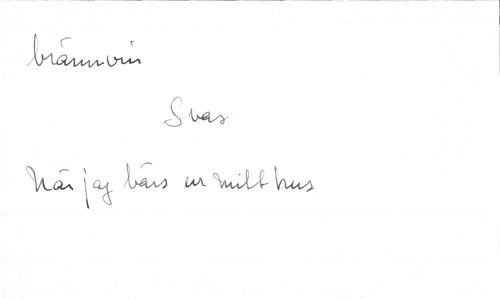 brännvin
Svas
När jag bärs ur mitt hus